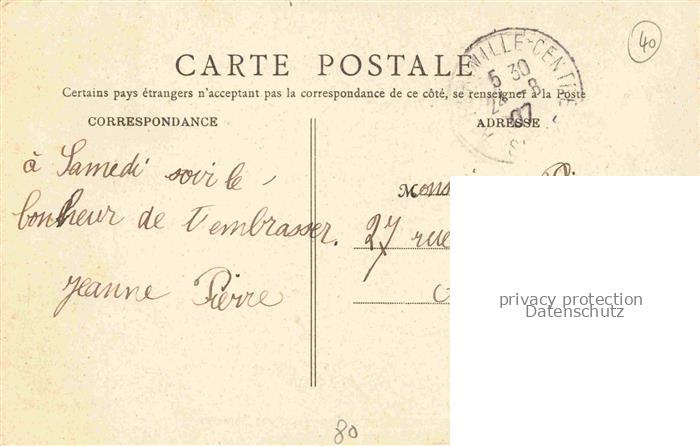 40
CARTE POSTALE
Certains pays étrangers n'acceptant pas la correspondance de ce côté, se renseigner à la Poste
CORRESPONDANCE
ADRESSE
5 30
07
à Samedi soir le
bonheur de t'embrasser.
Jeanne Pierre
27 rue
privacy protection
Datenschutz
80